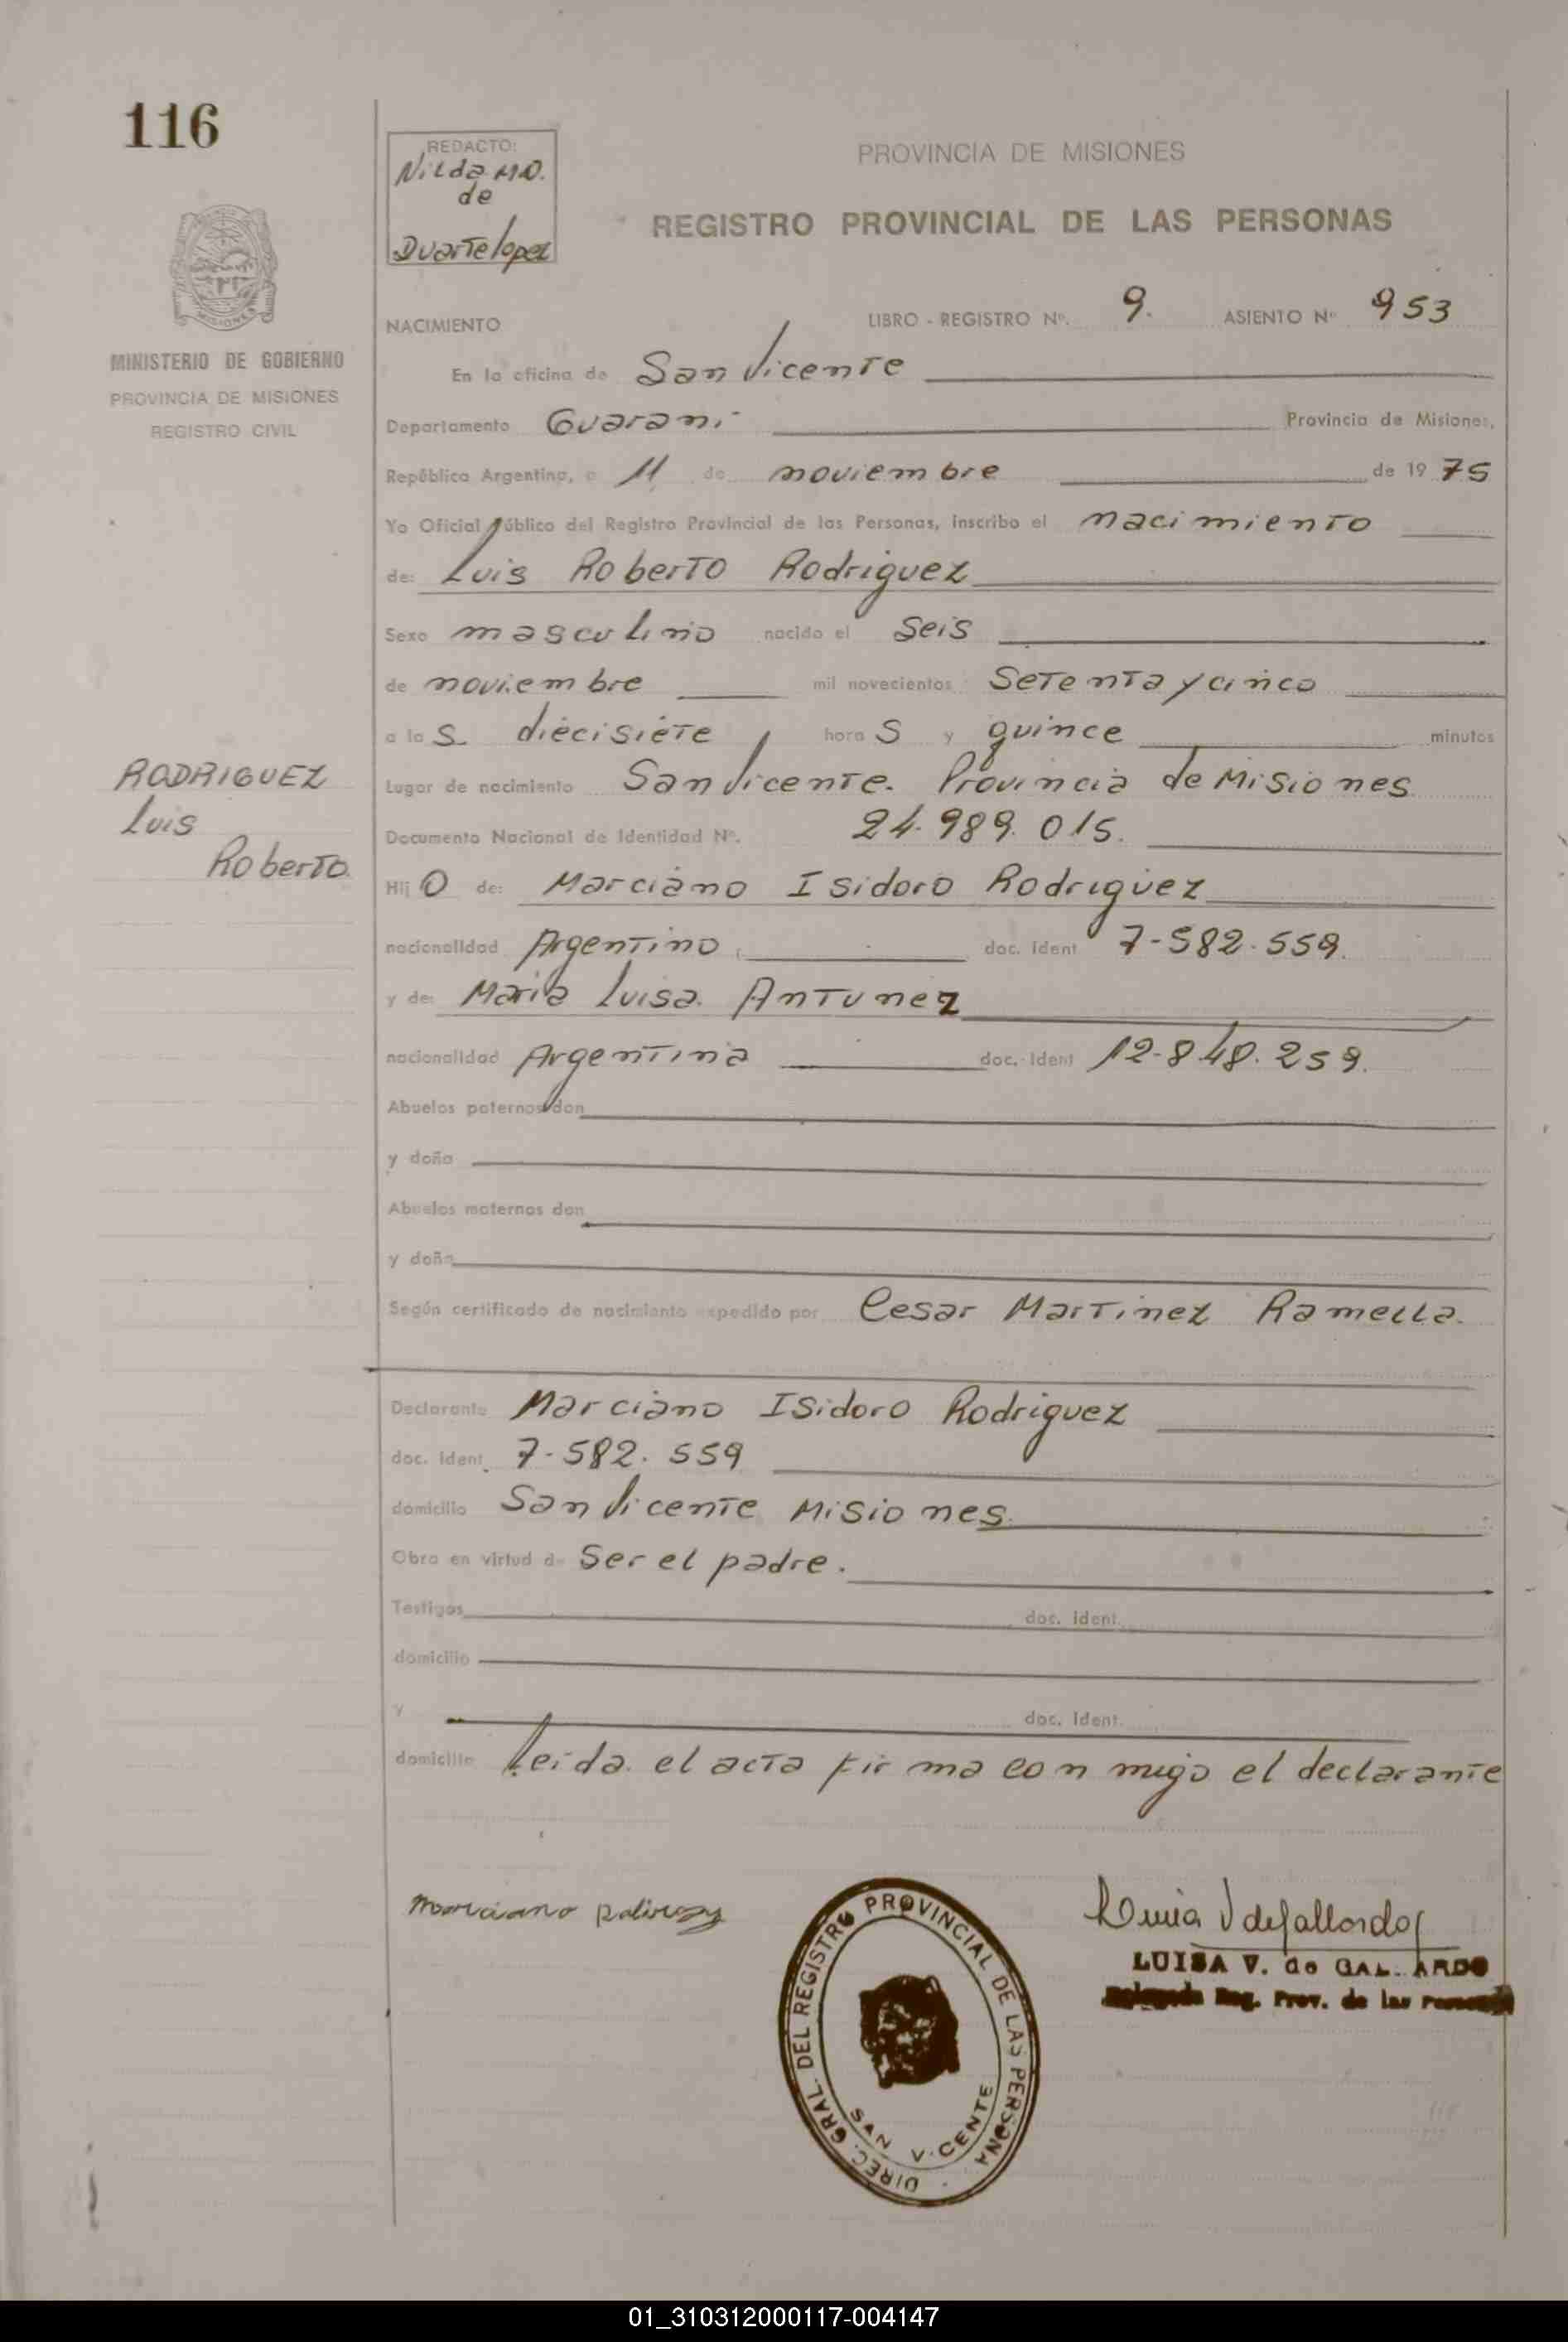 116
REDACTO:
Nilda M.D.
de
Duarte lopez
PROVINCIA DE MISIONES
REGISTRO PROVINCIAL DE LAS PERSONAS
MISIONES
MINISTERIO DE GOBIERNO
PROVINCIA DE MISIONES
REGISTRO CIVIL
NACIMIENTO LIBRO - REGISTRO Nº. 9. ASIENTO Nº 953
En la oficina de San Vicente
Departamento Guarani Provincia de Misiones,
República Argentina, a 11 de noviembre de 1975
Yo Oficial Público del Registro Provincial de las Personas, inscribo el nacimiento
de: Luis Roberto Rodriguez
Sexo masculino nacido el Seis
de noviembre mil novecientos Setenta y cinco
a las diecisiete horas y quince minutos
RODRIGUEZ
Luis
Roberto.
Lugar de nacimiento San Vicente. Provincia de Misiones
Documento Nacional de Identidad Nº. 24.989.015.
Hijo de: Marciano Isidoro Rodriguez
nacionalidad Argentino, doc. ident 7-582.559.
y de: Maria Luisa Antunez
nacionalidad Argentina doc. Ident 12-848.259.
Abuelos paternos don
y doña
Abuelos maternos don
y doña
Según certificado de nacimiento expedido por Cesar Martinez Ramella.
Declarante Marciano Isidoro Rodriguez
doc. Ident. 7-582.559
domicilio San Vicente Misiones.
Obra en virtud de Ser el padre.
Testigos doc. ident.
domicilio
y doc. Ident.
domicilio Leida el acta firma conmigo el declarante
Marciano
DIREC. GRAL. DEL REGISTRO PROVINCIAL DE LAS PERSONA
SAN V.CENTE
LUISA V. de GAL ARDO
Reg. Prov. de las
01_310312000117-004147